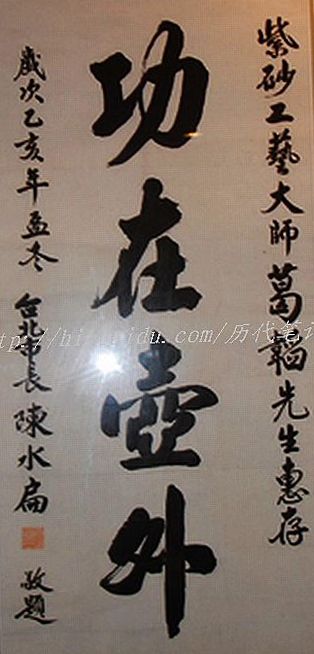 紫砂工藝大師葛韜先生惠存
功在壺外
歲次乙亥年孟冬 台北市長陳水扁 敬題